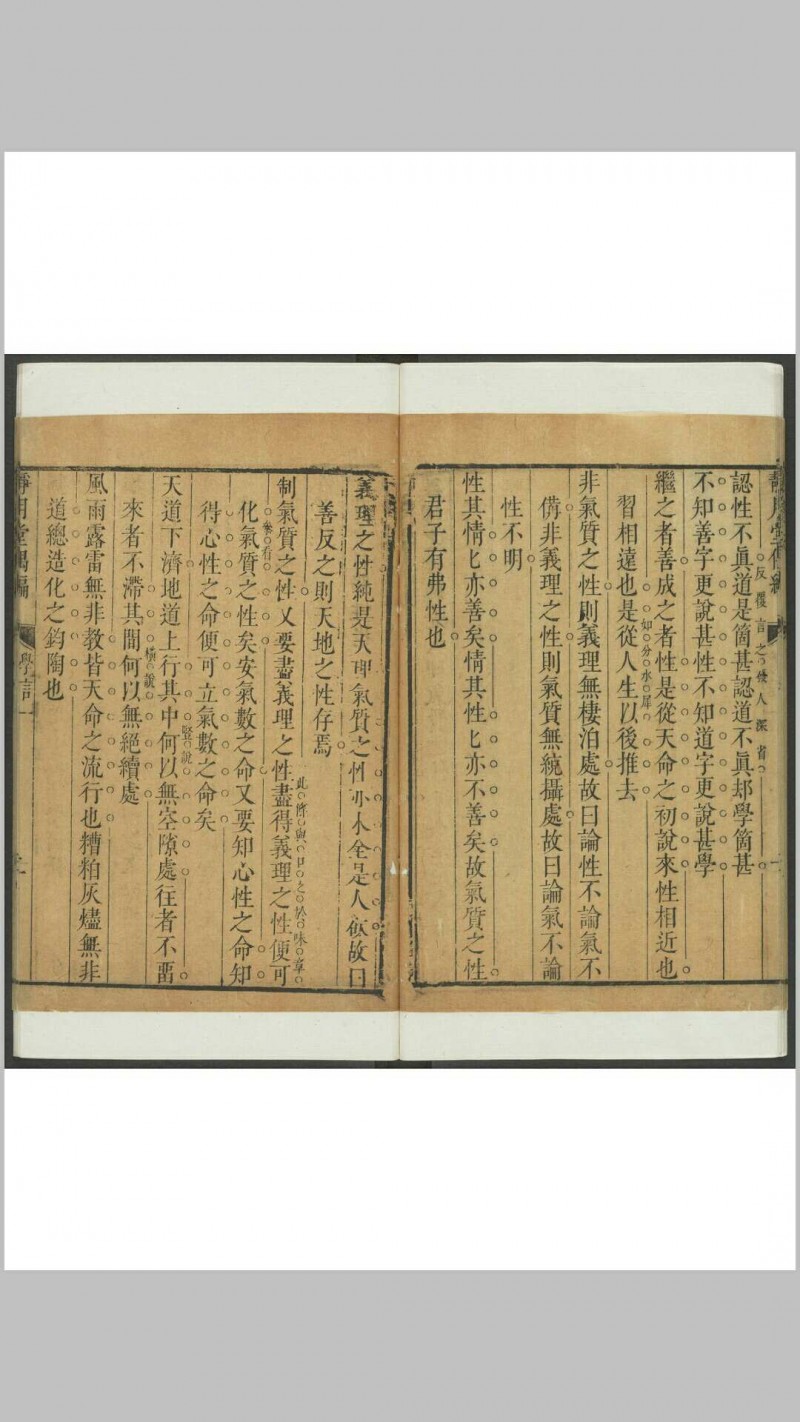 靜用堂偶編
認性不眞道是箇甚認道不眞却學箇甚
反覆言之使人深省
不知善字更說甚性不知道字更說甚學
繼之者善成之者性是從天命之初說來性相近也
習相遠也是從人生以後推去
如分水犀
非氣質之性則義理無棲泊處故曰論性不論氣不
僃非義理之性則氣質無統攝處故曰論氣不論
性不明
性其情匕亦善矣情其性匕亦不善矣故氣質之性
君子有弗性也
義理之性純是天理氣質之性全是人欲故曰
善反之則天地之性存焉
此條與口之於味章
參看
制氣質之性又要盡義理之性盡得義理之性便可
化氣質之性矣安氣數之命又要知心性之命知
得心性之命便可立氣數之命矣
天道下濟地道上行其中何以無空隙處往者不畱
竪說
來者不滯其間何以無絕續處
橫說
風雨露雷無非教皆天命之流行也糟粕灰燼無非
道總造化之鈞陶也
靜用堂偶編
學言一